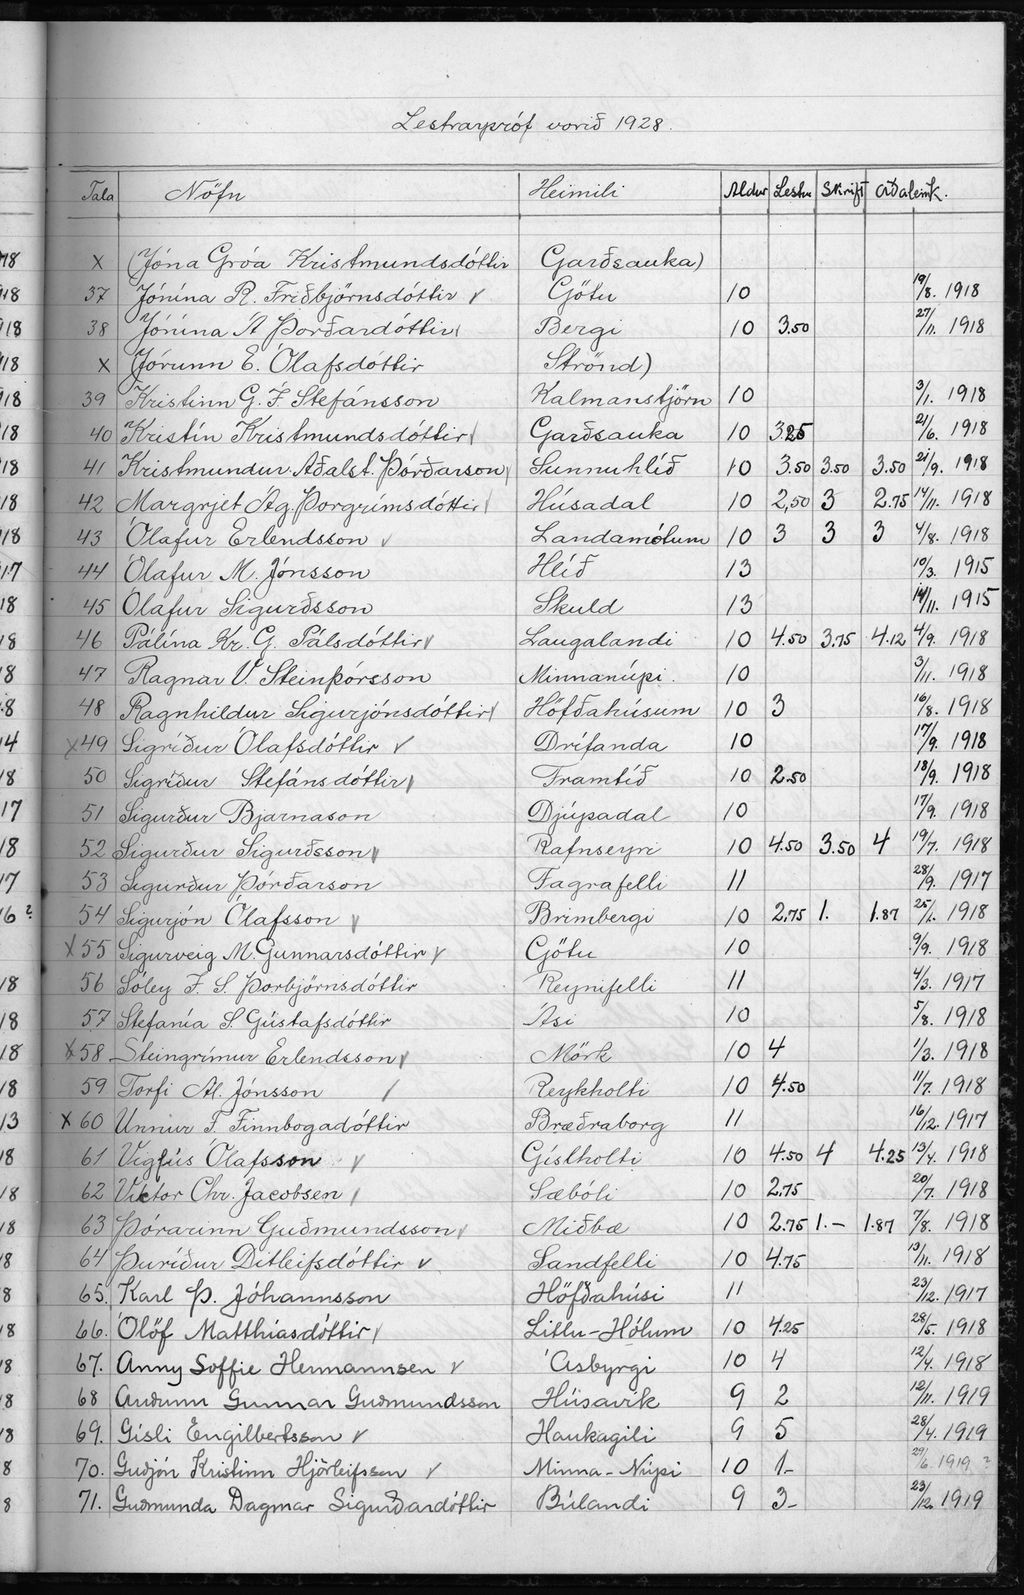 Lestrarpróf vorið 1928.
Tala Nöfn Heimili Aldur Lestur Skrift Aðaleink.
x (Jóna Gróa Kristmundsdóttir Garðsauka)
37 Jónína R. Friðbjörnsdóttir v Götu 10 19/8. 1918
38 Jónína Á Þorðardóttir Bergi 10 3.50 27/11. 1918
x (Jórunn E. Ólafsdóttir Strönd)
39 Kristinn G. F. Stefánsson Kalmanstjörn 10 3/1. 1918
40 Kristín Kristmundsdóttir Garðsauka 10 3.25 21/6. 1918
41 Kristmundur Aðalst. Þórðarson Sunnuhlíð 10 3.50 3.50 3.50 21/9. 1918
42 Margrjet Ág. Þorgrímsdóttir Húsadal 10 2,50 3 2.75 14/11. 1918
43 Ólafur Erlendsson v Landamótum 10 3 3 3 4/8. 1918
44 Ólafur M. Jónsson Hlíð 13 10/3. 1915
45 Ólafur Sigurðsson Skuld 13 14/11. 1915
46 Pálína Kr. G. Pálsdóttir v Laugalandi 10 4.50 3.75 4.12 4/9. 1918
47 Ragnar V. Steinþórsson Minnanúpi. 10 3/11. 1918
48 Ragnhildur Sigurjónsdóttir Höfðahúsum 10 3 16/8. 1918
x 49 Sigríður Ólafsdóttir v Drífanda 10 17/9. 1918
50 Sigríður Stefánsdóttir Framtíð 10 2.50 18/9. 1918
51 Sigurður Bjarnason Djúpadal 10 17/9. 1918
52 Sigurður Sigurðsson Rafnseyri 10 4.50 3.50 4 19/7. 1918
53 Sigurður Þórðarson Fagrafelli 11 28/9. 1917
54 Sigurjón Ólafsson v Brimbergi 10 2,75 1. 1.87 25/1. 1918
x 55 Sigurveig M. Gunnarsdóttir v Götu 10 9/9. 1918
56 Sóley F. S. Þorbjörnsdóttir Reynifelli 11 4/3. 1917
57 Stefanía S. Gústafsdóttir Ási 10 5/8. 1918
x 58 Steingrímur Erlendsson v Mörk 10 4 1/3. 1918
59 Torfi Al. Jónsson / Reykholti 10 4.50 11/7. 1918
x 60 Unnur F Finnbogadóttir Bræðraborg 11 16/12. 1917
61 Vigfús Ólafsson v Gíslholti 10 4.50 4 4.25 13/4. 1918
62 Victor Chr. Jacobsen / Sæbóli 10 2,75 20/7. 1918
63 Þórarinn Guðmundsson Miðbæ 10 2.75 1.– 1.87 7/8. 1918
64 Þuríður Ditleifsdóttir v Sandfelli 10 4.75 13/11. 1918
65. Karl Þ. Jóhannsson Höfðahúsi 11 23/12. 1917
66. Ólöf Matthíasdóttir / Litlu-Hólum 10 4.25 28/5. 1918
67. Anny Soffie Hermannsen v Ásbyrgi 10 4 12/4. 1918
68 Auðunn Gunnar Guðmundsson Húsavík 9 2 12/11. 1919
69. Gísli Engilbertsson v Haukagili 9 5 28/4. 1919
70. Guðjón Kristinn Hjörleifsson v Minna-Núpi 10 1– 29/6. 1919?
71. Guðmunda Dagmar Sigurðardóttir Búlandi 9 3– 23/12. 1919